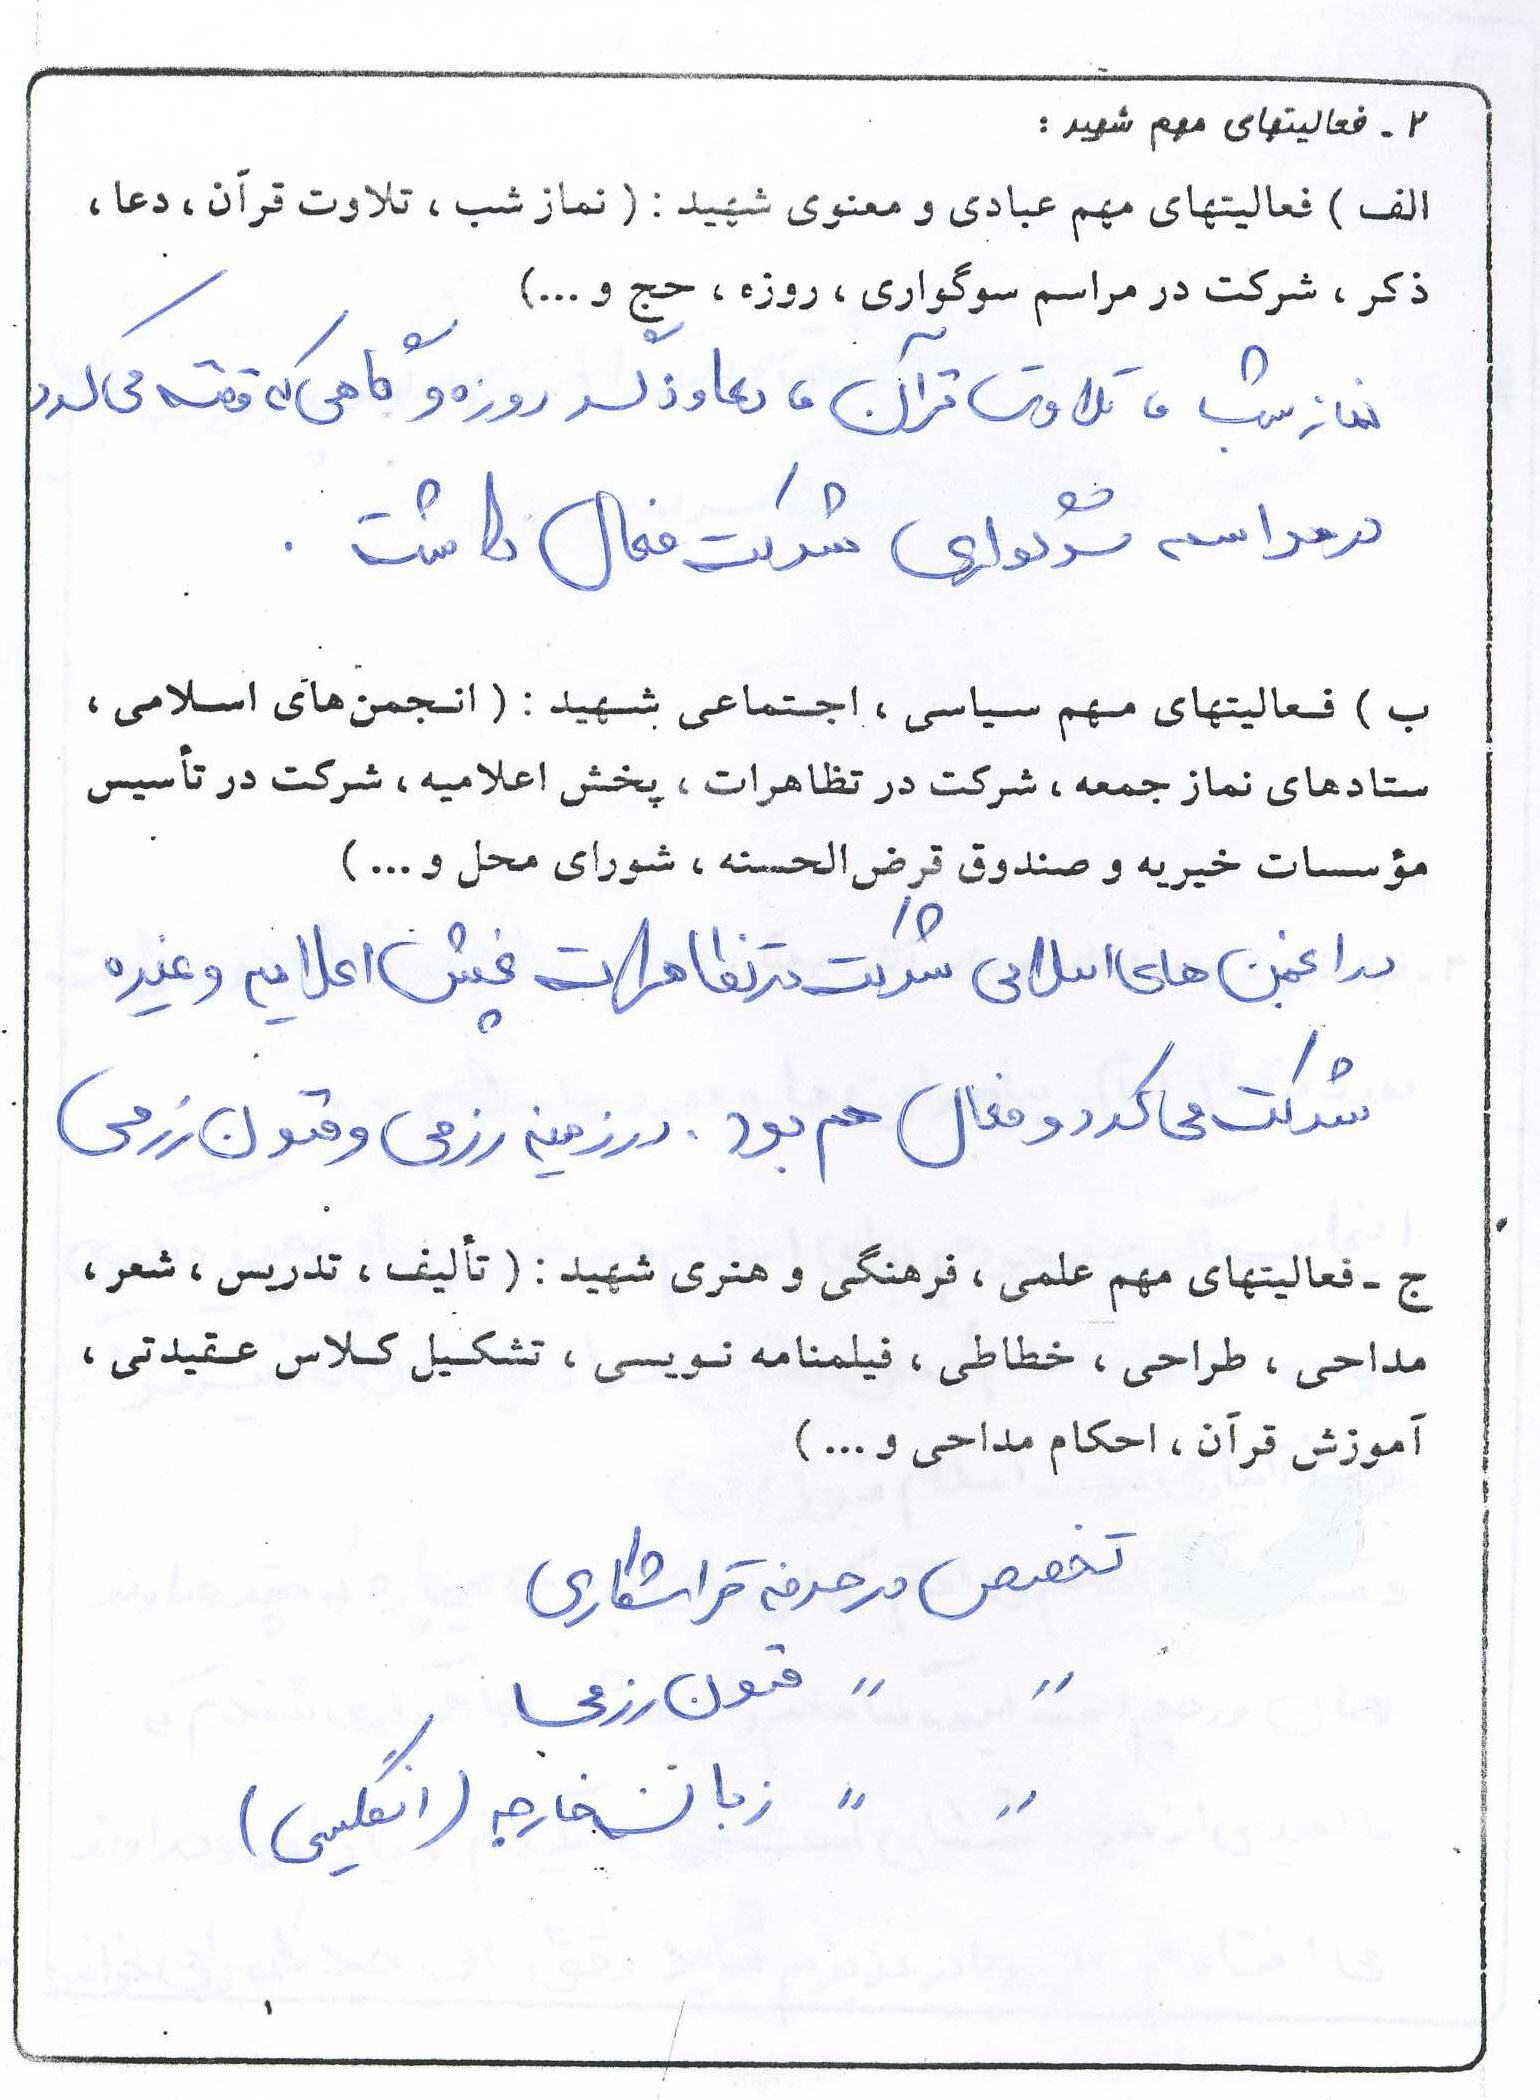 ۲ - فعالیتهای مهم شهید :
الف ) فعالیتهای مهم عبادی و معنوی شهید : ( نماز شب ، تلاوت قرآن ، دعا ،
ذکر ، شرکت در مراسم سوگواری ، روزه ، حج و ...)
نماز شب ، تلاوت قرآن ، دعا و ذکر روزه و گاهی که وقت می کرد
در مراسم سوگواری شرکت فعال داشت .
ب ) فعالیتهای مهم سیاسی ، اجتماعی شهید : ( انجمن‌های اسلامی ،
ستادهای نماز جمعه ، شرکت در تظاهرات ، پخش اعلامیه ، شرکت در تأسیس
مؤسسات خیریه و صندوق قرض‌الحسنه ، شورای محل و ... )
در انجمن های اسلامی شرکت در تظاهرات پخش اعلامیه و غیره
شرکت می کرد و فعال هم بود . در زمینه رزمی و فنون رزمی
ج - فعالیتهای مهم علمی ، فرهنگی و هنری شهید : ( تألیف ، تدریس ، شعر ،
مداحی ، طراحی ، خطاطی ، فیلمنامه نویسی ، تشکیل کلاس عقیدتی ،
آموزش قرآن ، احکام مداحی و ... )
تخصص در حرفه تراشکاری
" " فنون رزمی
" " زبان خارجه (انگلیسی)